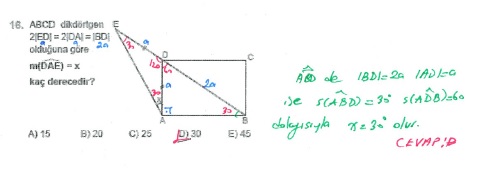 16. ABCD dikdörtgen
2|ED| = 2|DA| = |BD|
olduğuna göre
m(DAE) = x
kaç derecedir?
E
a
2a
D
C
120
60
2a
a
30
30
x
A
B
A) 15 B) 20 C) 25 D) 30 E) 45
ABD de |BD|=2a |AD|=a
ise s(ABD)=30° s(ADB)=60
dolayısıyla x=30° olur.
CEVAP:D